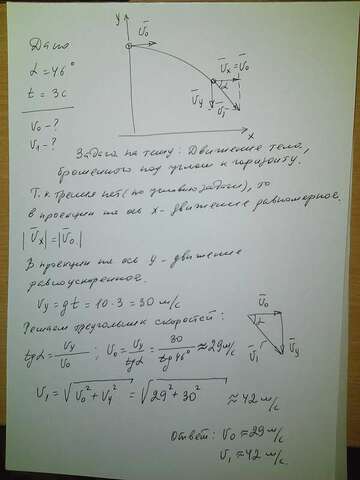 Дано
α = 46°
t = 3с
v₀ - ?
v₁ - ?
y
v̄₀
v̄ₓ = v̄₀
α
v̄y
v̄₁
x
Задача на тему: Движение тела,
брошенного под углом к горизонту.
Т.к. трения нет (по условию задачи), то
в проекции на ось x - движение равномерное.
|v̄ₓ| = |v̄₀|
В проекции на ось y - движение
равноускоренное.
vy = gt = 10 · 3 = 30 м/с
Решаем треугольник скоростей:
v̄₀
α
v̄₁
v̄y
tgα = vy/v₀ ; v₀ = vy/tgα = 30/tg46° ≈ 29 м/с
v₁ = √(v₀² + vy²) = √(29² + 30²) ≈ 42 м/с
Ответ: v₀ ≈ 29 м/с
v₁ ≈ 42 м/с